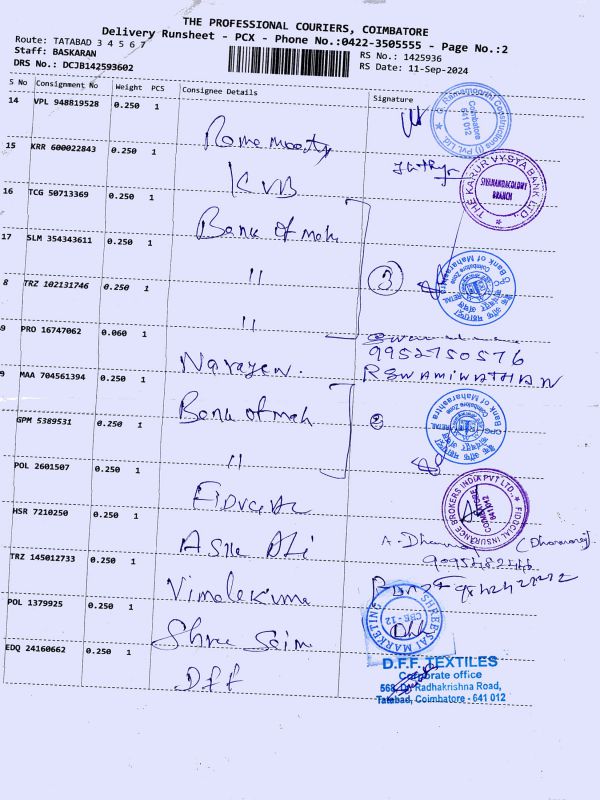 THE PROFESSIONAL COURIERS, COIMBATORE
Delivery Runsheet - PCX - Phone No.:0422-3505555 - Page No.:2
Route: TATABAD 3 4 5 6 7
Staff: BASKARAN
RS No.: 1425936
DRS No.: DCJB142593602
RS Date: 11-Sep-2024
S No Consignment No Weight PCS Consignee Details Signature
14 VPL 948819528 0.250 1
G. Ramamoorthi Constructions (I) Pvt. Ltd. Coimbatore 641 012
15 KRR 600022843 0.250 1 KVB
THE KARUR VYSYA BANK LTD. SIVANANDACOLONY BRANCH
16 TCG 50713369 0.250 1 Bank of mah
17 SLM 354343611 0.250 1 "
3
Bank of Maharashtra Coimbatore Zone RETAIL
8 TRZ 102131746 0.250 1 "
9 PRO 16747062 0.060 1 Narayan.
9952750576
RSWAMINATHAN
9 MAA 704561394 0.250 1 Bank of mah
2
Bank of Maharashtra Coimbatore Zone CPC RETAIL
GPM 5389531 0.250 1 "
POL 2601507 0.250 1
FIDCIAL INSURANCE BROKERS INDIA PVT LTD. COIMBATORE 641 012
HSR 7210250 0.250 1
A. (Dhanaraj)
TRZ 145012733 0.250 1 Vimalekuma
POL 1379925 0.250 1 Shree Sai
SHREE SAI MARKETING CBE - 12
EDQ 24160662 0.250 1 Dff
D.F.F. TEXTILES
Corporate office
568, Dr. Radhakrishna Road,
Tatabad, Coimbatore - 641 012